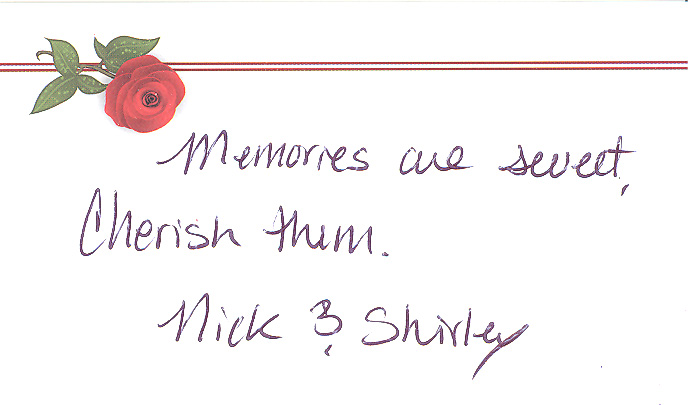 Memories are sweet,
Cherish them.
Nick & Shirley